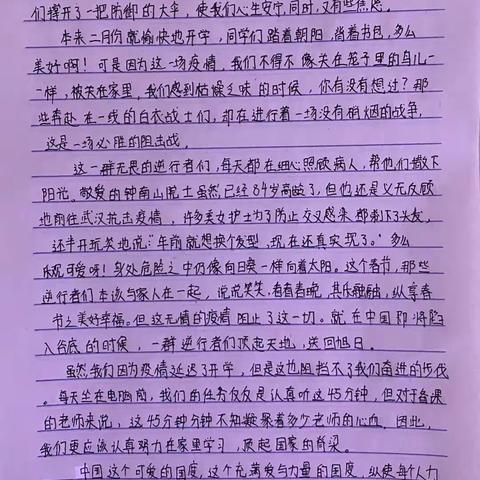 们撑开了一把防御的大伞,使我们心生安宁,同时,又有些焦虑。
本来二月份就愉快地开学,同学们踏着朝阳,背着书包,多么
美好啊!可是因为这一场疫情,我们不得不像关在笼子里的鸟儿一
样,被关在家里。我们感到枯燥乏味的时候,你有没有想过?那
些奔赴在一线的白衣战士们,却在进行着一场没有硝烟的战争,
这是一场必胜的阻击战。
这一群无畏的逆行者们,每天都在细心照顾病人,帮他们撒下
阳光。敬爱的钟南山院士虽然已经84岁高龄了,但他还是义无反顾
地前往武汉抗击疫情,许多美女护士为了防止交叉感染都剃了头发,
还半开玩笑地说:"年前就想换个发型,现在还真实现了。"多么
乐观可爱呀!身处危险之中仍像向日葵一样向着太阳。这个春节,那些
逆行者们本该与家人在一起,说说笑笑,看看春晚,其乐融融,纵享春
节之美好幸福。但这无情的疫情阻止了这一切。就在中国即将陷
入谷底的时候,一群逆行者们顶起天地,送回旭日。
虽然我们因为疫情延迟了开学,但是这也阻挡不了我们奋进的步伐
。每天坐在电脑前,我们的任务仅仅是认真听这45分钟,但对于备课
的老师来说,这45分钟分钟不知凝聚着多少老师的心血。因此,
我们更应该认真努力在家里学习,顶起国家的脊梁。
中国这个可爱的国度,这个充满爱与力量的国度,纵使每个人力